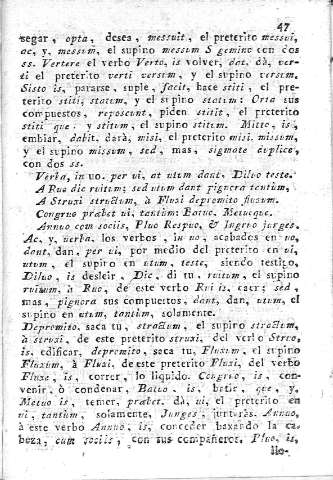 47
segar, opta, desea, messuit, el preterito messui,
ac, y, messum, el supino messum S gemine con dos
ss. Vertere el verbo Verto, is volver, dat. dà, ver-
ti el preterito verti versum, y el supino versum.
Sisto is, pararse, suple, facit, hace stiti, el pre-
terito stiti, statum, y el supino statum: Orta sus
compuestos, reposcunt, piden stitit, el preterito
stiti que. y stitum, el supino stitum. Mitto, is,
embiar, dabit. darà, misi, el preterito misi. missum,
y el supino missum, sed, mas, signate duplice,
con dos ss.
Verba, in uo. per ui, at utum dant. Diluo teste.
A Ruo dic ruitum; sed utum dant pignora tantùm,
A Struxi structum, à Fluxi depromito fluxum.
Congruo præbet ui, tantùm: Batuo. Metuoque.
Annuo cum sociis, Pluo Respuo, & Ingruo junges.
Ac, y, verba. los verbos, in uo, acabados en uo,
dant, dan, per ui, por medio del preterito en ui,
utum, el supino en utum, teste, siendo testigo,
Diluo, is desleir, Dic, di tu, ruitum, el supino
ruitum, à Ruo, de este verbo Rui is, caer; sed,
mas, pignora sus compuestos, dant, dan, utum, el
supino en utum, tantùm, solamente.
Depromito, saca tu, structum, el supino structum,
à struxi, de este preterito struxi, del verbo Struo,
is. edificar, depromito, saca tu, Fluxum, el supino
Fluxum, à Fluxi, de este preterito Fluxi, del verbo
Fluxe, is, correr, lo liquido. Congruo, is, con-
venir, ò condenar, Batuo, is, batir, que, y,
Metuo is, temer, præbet, dà, ui, el preterito en
ui, tantùm, solamente, Junges, juntaràs. Annuo,
à este verbo Annuo, is, conceder baxando la ca-
beza; cum sociis, con sus compañeros, Pluo, is,
llo-